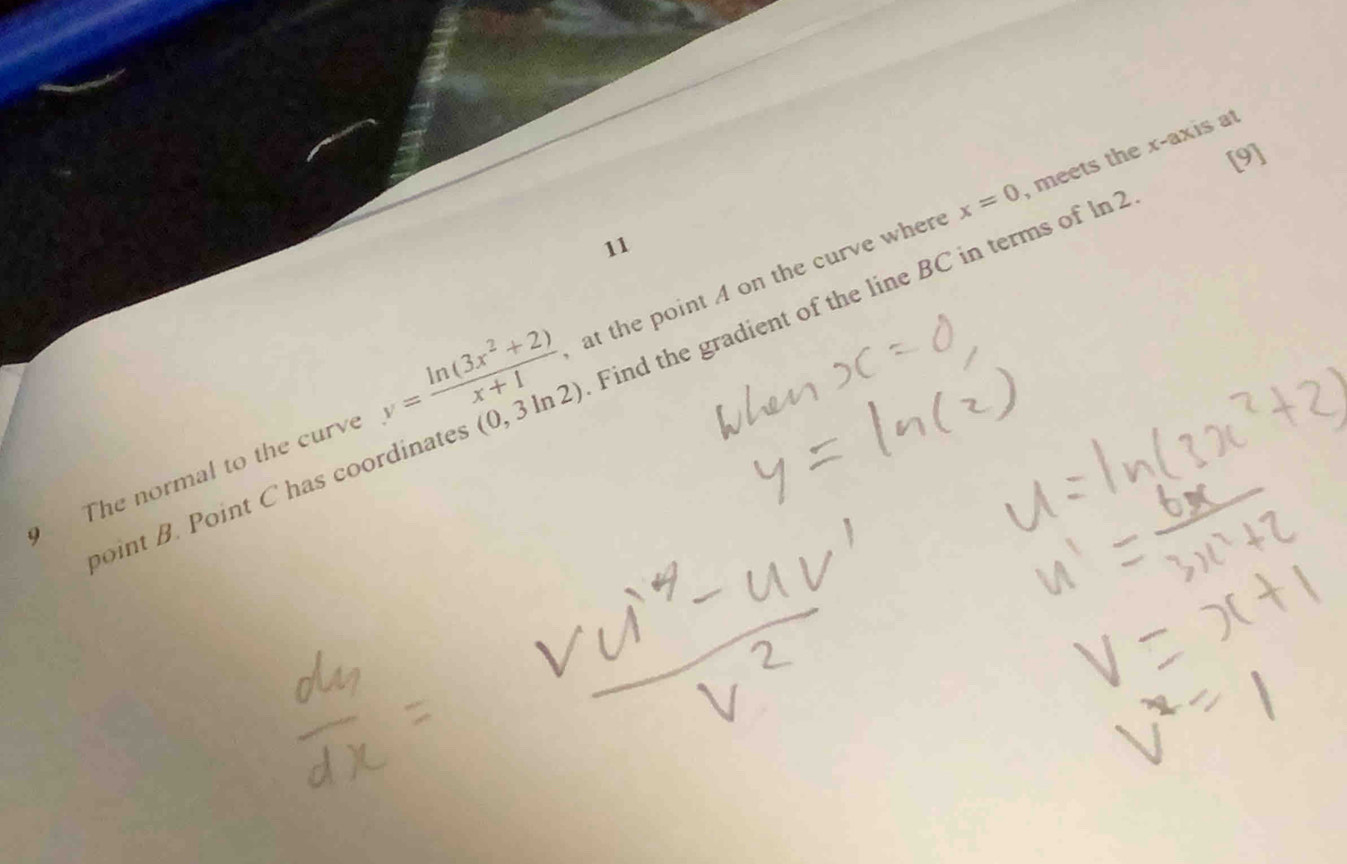 11
9 The normal to the curve y = ln(3x² + 2) / (x + 1), at the point A on the curve where x = 0, meets the x-axis at
point B. Point C has coordinates (0, 3 ln 2). Find the gradient of the line BC in terms of ln 2. [9]
When x = 0,
y = ln(2)
u = ln(3x² + 2)
u' = 6x / (3x² + 2)
v = x + 1
v' = 1
dy/dx = (vu' - uv') / v²